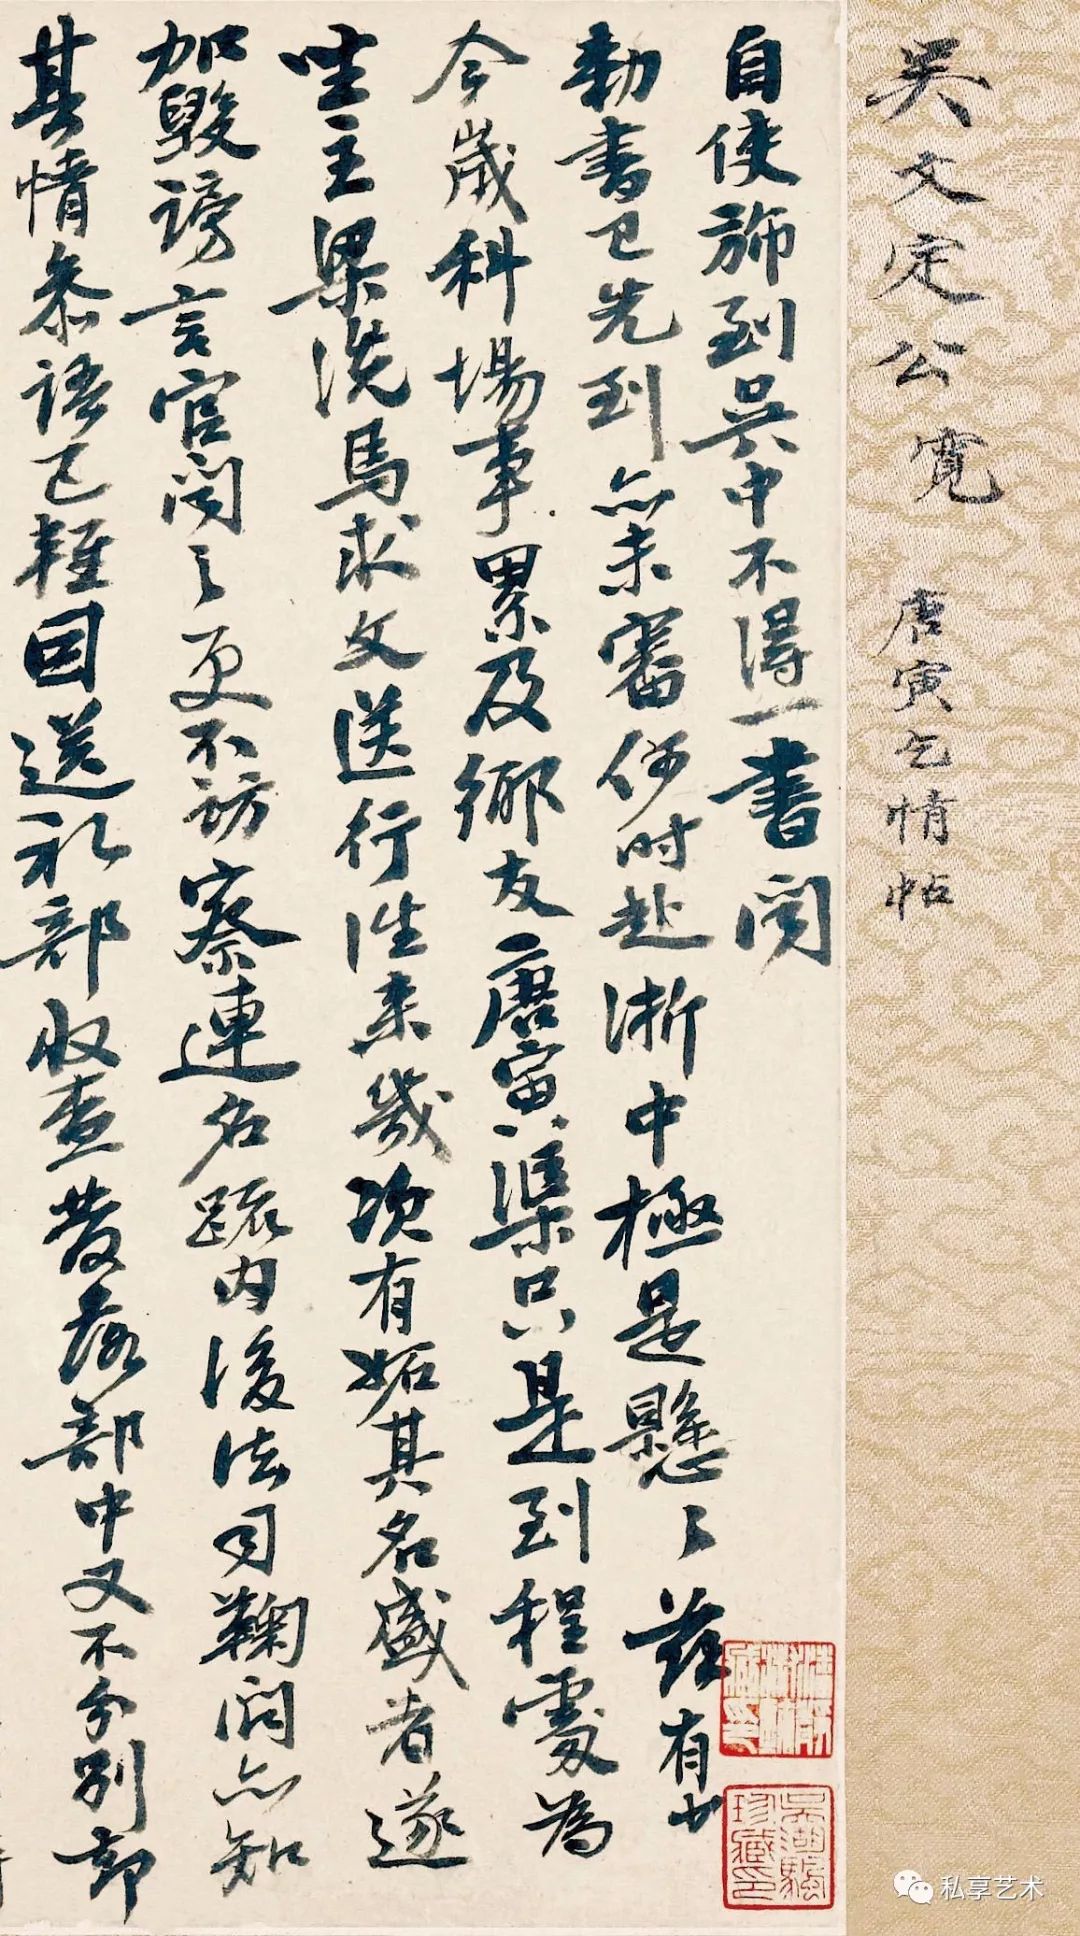 吴文定公寬
唐寅乞情帖
自使旆到吳中不得一書聞
勅書已先到亦未審何时赴浙中極是懸懸茲有少
今歲科場事累及鄉友唐寅渠只是到程處為
坐主梁洗馬求文送行往来幾次有妬其名盛者遂
加毀謗言官聞之更不訪察連名疏内後法司鞫问亦知
其情参语已輕因送礼部收查發落部中又不分别却
吳湖驄珍藏印
私享艺术